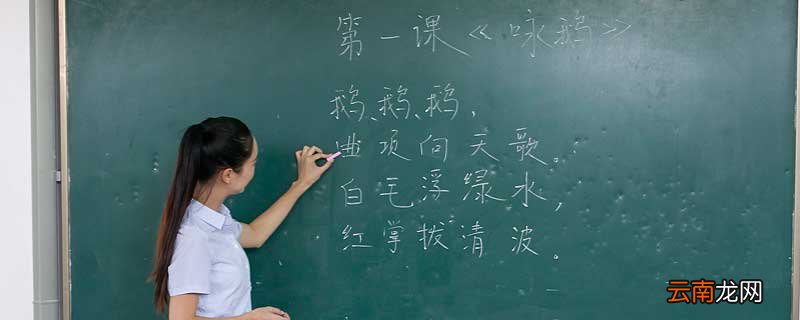 第一课《咏鹅》
鹅、鹅、鹅,
曲项向天歌。
白毛浮绿水,
红掌拨清波。
云南龙网